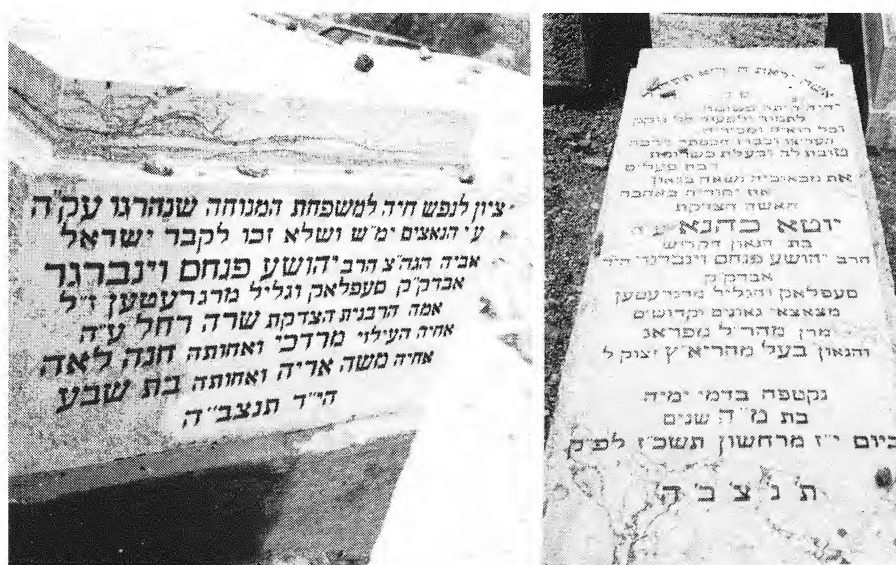 ציון לנפש חיה למשפחת המנוחה שנהרגו עק״ה
ע״י הנאצים ימ״ש ושלא זכו לקבר ישראל
אביה הגה״צ הרב יהושע פנחם וינברגר
אבדק״ק סעפלאק וגליל מרגרעטען ז״ל
אמה הרבנית הצדקת שרה רחל ע״ה
אחיה העילוי מרדכי ואחותה חנה לאה
אחיה משה אריה ואחותה בת שבע
הי״ד תנצב״ה
אשה יראת ה׳ היא
לתמיד
וכל רואיה ומכיריה
טובת לב ובעלת כשרונות
רבת פעלים
את מכאוביה נשאה בגאון
את יסוריה באהבה
האשה הצדקת
יוטא כהנא ע״ה
בת הגאון הקדוש
הרב יהושע פנחם וינברגר הי״ד
אבדק״ק
סעפלאק והגליל מרגרעטען
מצאצאי גאונים וקדושים
מרן מהר״ל מפראג
והגאון בעל מהריא״ץ זצוק״ל
נקטפה בדמי ימיה
בת מ״ה שנים
ביום י״ז מרחשון תשכ״ז לפ״ק
ת׳ נ׳ צ׳ ב׳ ה׳